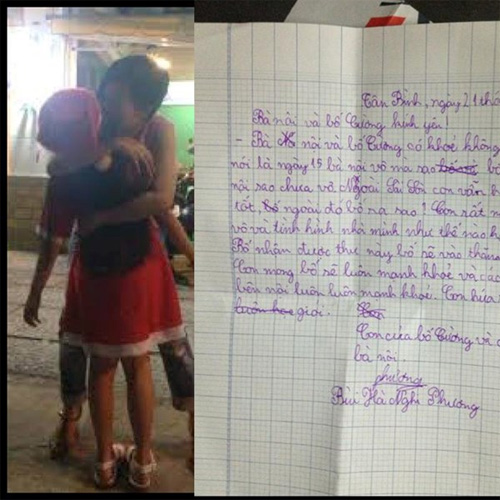 Tân Bình, ngày 21 thá
Bà nội và bố Cường kính yêu!
- Bà nội và bố Cường có khoẻ không
nói là ngày 15 bà nội vô mà sao bà
nội sao chưa vô Ngoài Sài Gòn con vẫn b
tốt, ngoài đó bố ra sao? Con rất m
vô và tình hình nhà mình như thế nào h
Bố nhận được thư này bố sẽ vào thăm
Con mong bố sẽ luôn mạnh khoẻ và cá
bên nội luôn luôn mạnh khoẻ. Con hứa
giỏi.
Con của bố Cường và c
bà nội.
phương
Bùi Hà Nghi Phương